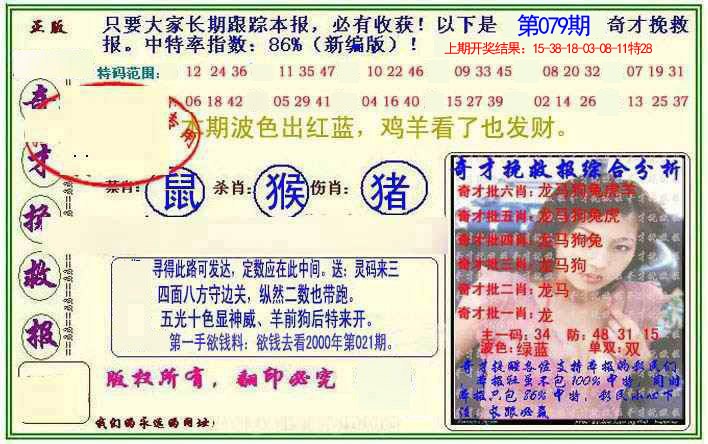 正版
只要大家长期跟踪本报，必有收获！以下是 第079期 奇才挽救
报。中特率指数：86%（新编版）！
上期开奖结果：15-38-18-03-08-11特28
特码范围：
12 24 36 11 35 47 10 22 46 09 33 45 08 20 32 07 19 31
06 18 42 05 29 41 04 16 40 15 27 39 02 14 26 13 25 37
本期波色出红蓝，鸡羊看了也发财。
奇
才
救
报
禁肖： 鼠 杀肖： 猴 伤肖： 猪
寻得此路可发达，定数应在此中间。送：灵码来三
四面八方守边关，纵然二数也带跑。
五光十色显神威、羊前狗后特来开。
第一手欲钱料：欲钱去看2000年第021期。
版权所有，翻印必究
我们的永远的网址：
奇才挽救报综合分析
奇才批六肖：龙马狗兔虎羊
奇才批五肖：龙马狗兔虎
奇才批四肖：龙马狗兔
奇才批三肖：龙马狗
奇才批二肖：龙马
奇才批一肖：龙
主一码：34 防：48 31 15
波色：绿蓝 单双：双
奇才挽救各位支持本报的彩民们
本报虽不包100%中特，同时
本报只包86%中特，彩民小心下
注，长跟必赢